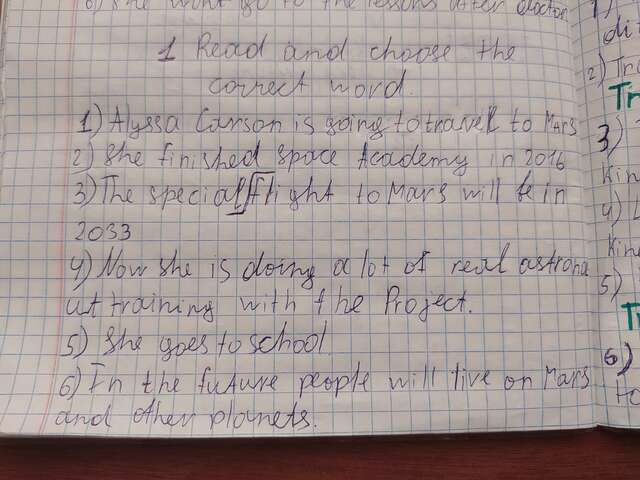 6) She won't go to the lessons after doctor
1 Read and choose the
correct word.
1) Alyssa Carson is going to travel to Mars
2) She finished space Academy in 2016
3) The special flight to Mars will be in
2033
4) Now she is doing a lot of real astrona
ut training with the Project.
5) She goes to school
6) In the future people will live on Mars
and other planets.
1)
di
2) Tr
Tr
3)
Kin
4)
Kin
5)
Tr
6)